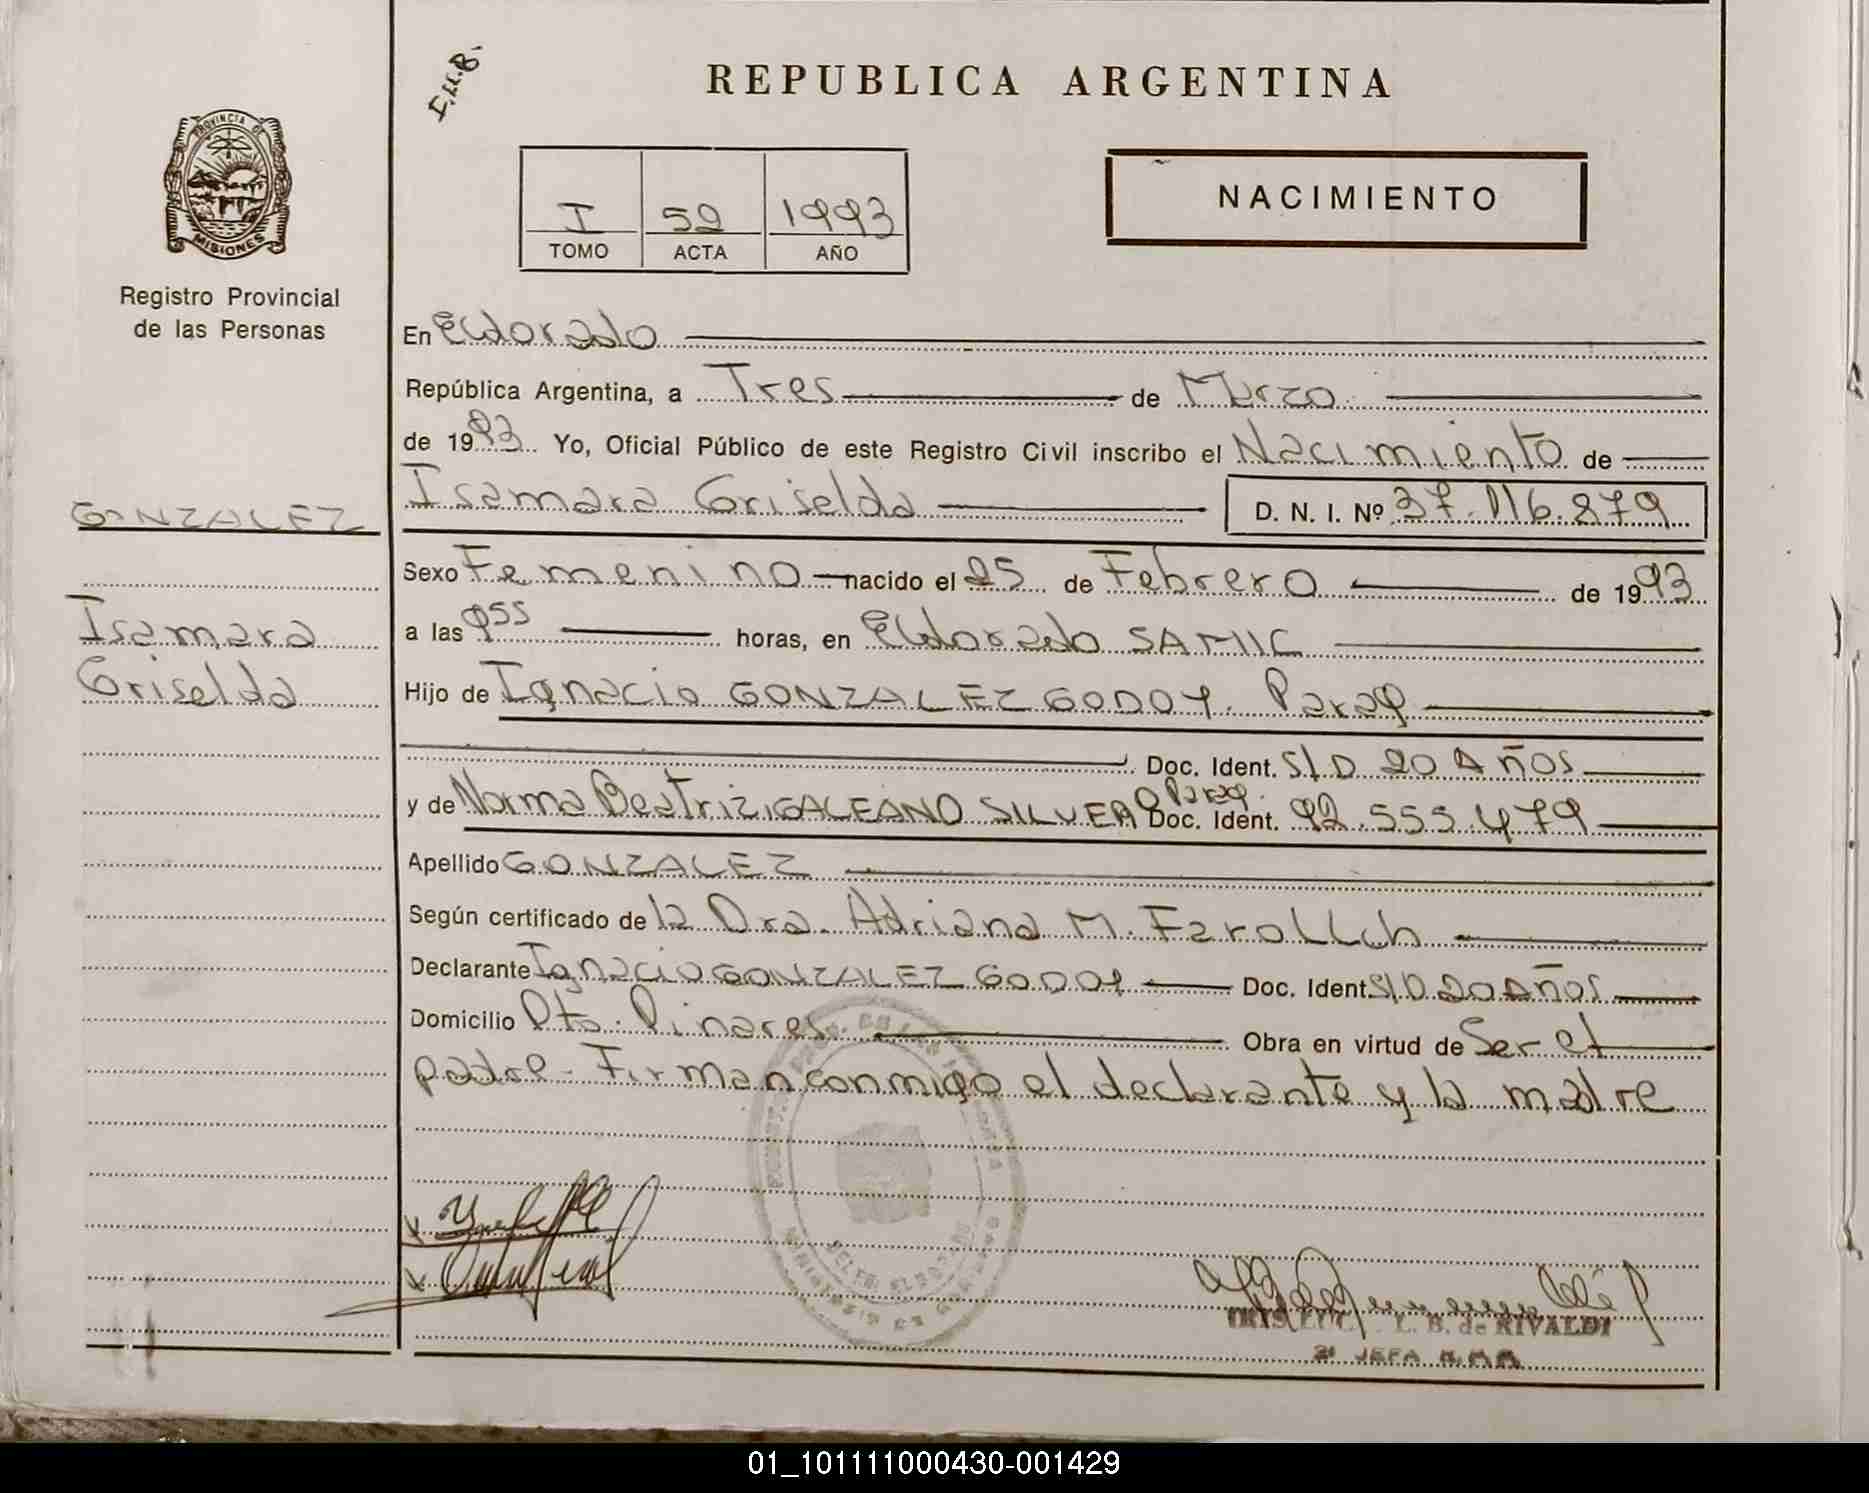 I.LL.B.
REPUBLICA ARGENTINA
PROVINCIA DE
MISIONES
Registro Provincial
de las Personas
I 52 1993
TOMO ACTA AÑO
NACIMIENTO
En Eldorado
República Argentina, a Tres de Marzo
de 1993 Yo, Oficial Público de este Registro Civil inscribo el Nacimiento de
GONZALEZ
Isamara Griselda D. N. I. Nº 37.116.879
Sexo Femenino nacido el 25 de Febrero de 1993
Isamara
Griselda
a las 9 55 horas, en Eldorado SAMIC
Hijo de Ignacio GONZALEZ GODOY. Parag
Doc. Ident. S/D 20 Años
y de Norma Beatriz GALEANO SILVERO Parag. Doc. Ident. 92.555.479
Apellido GONZALEZ
Según certificado de la Dra. Adriana M.
Declarante Ignacio GONZALEZ GODOY Doc. Ident S/D 20 Años
Domicilio Pto. Pinares. Obra en virtud de Ser el
padre - Firman conmigo el declarante y la madre
L. B. de RIVALDI
JEFA
01_101111000430-001429